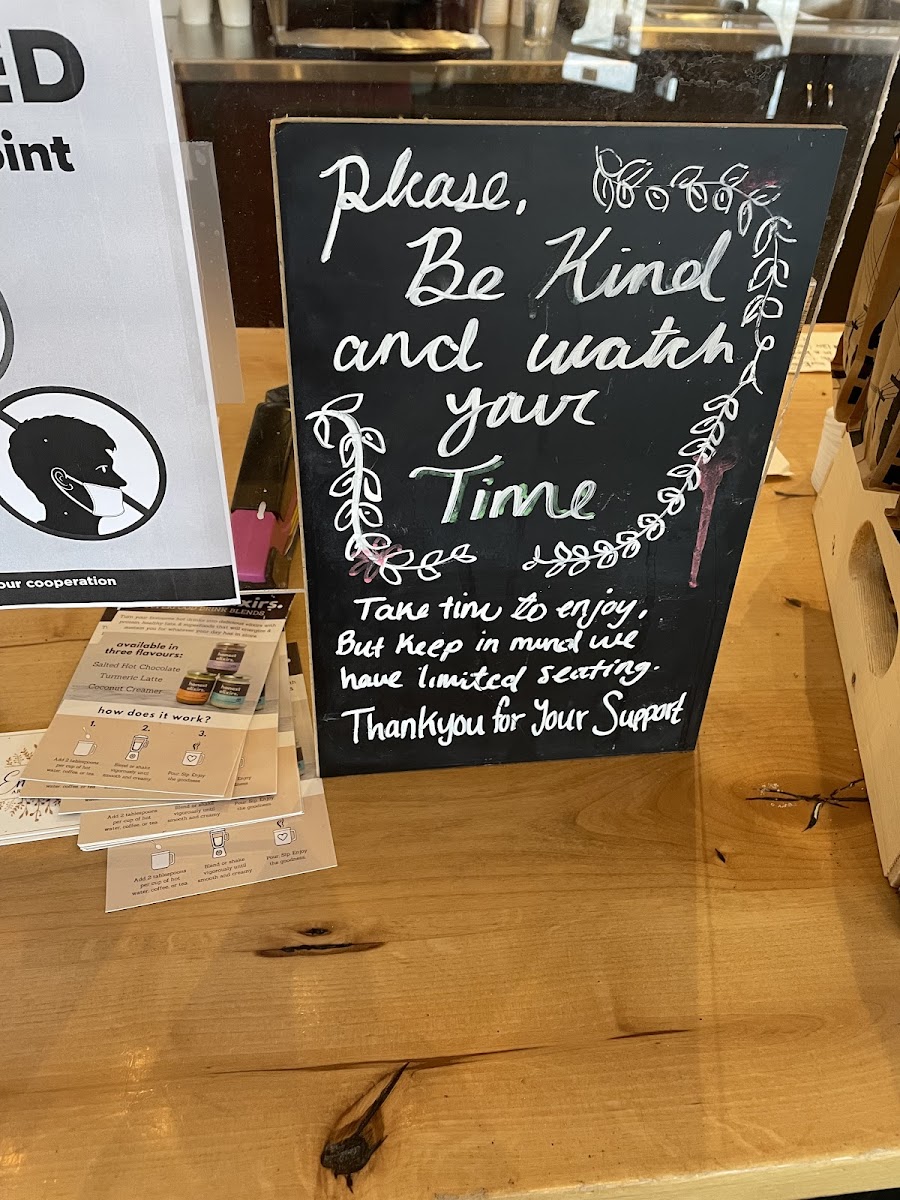 ED
oint
our cooperation
Please,
Be Kind
and watch
your
Time
Take time to enjoy,
But keep in mind we
have limited seating.
Thankyou for Your Support
xirs.
DRINK BLENDS
available in
three flavours:
Salted Hot Chocolate
Turmeric Latte
Coconut Creamer
how does it work?
1.
2.
3.
Add 2 tablespoons
per cup of hot
water, coffee, or tea
Blend or shake
vigorously until
smooth and creamy
Pour. Sip. Enjoy
the goodness.
Add 2 tablespoons
per cup of hot
water, coffee, or tea
Blend or shake
vigorously until
smooth and creamy
Pour. Sip. Enjoy
the goodness.